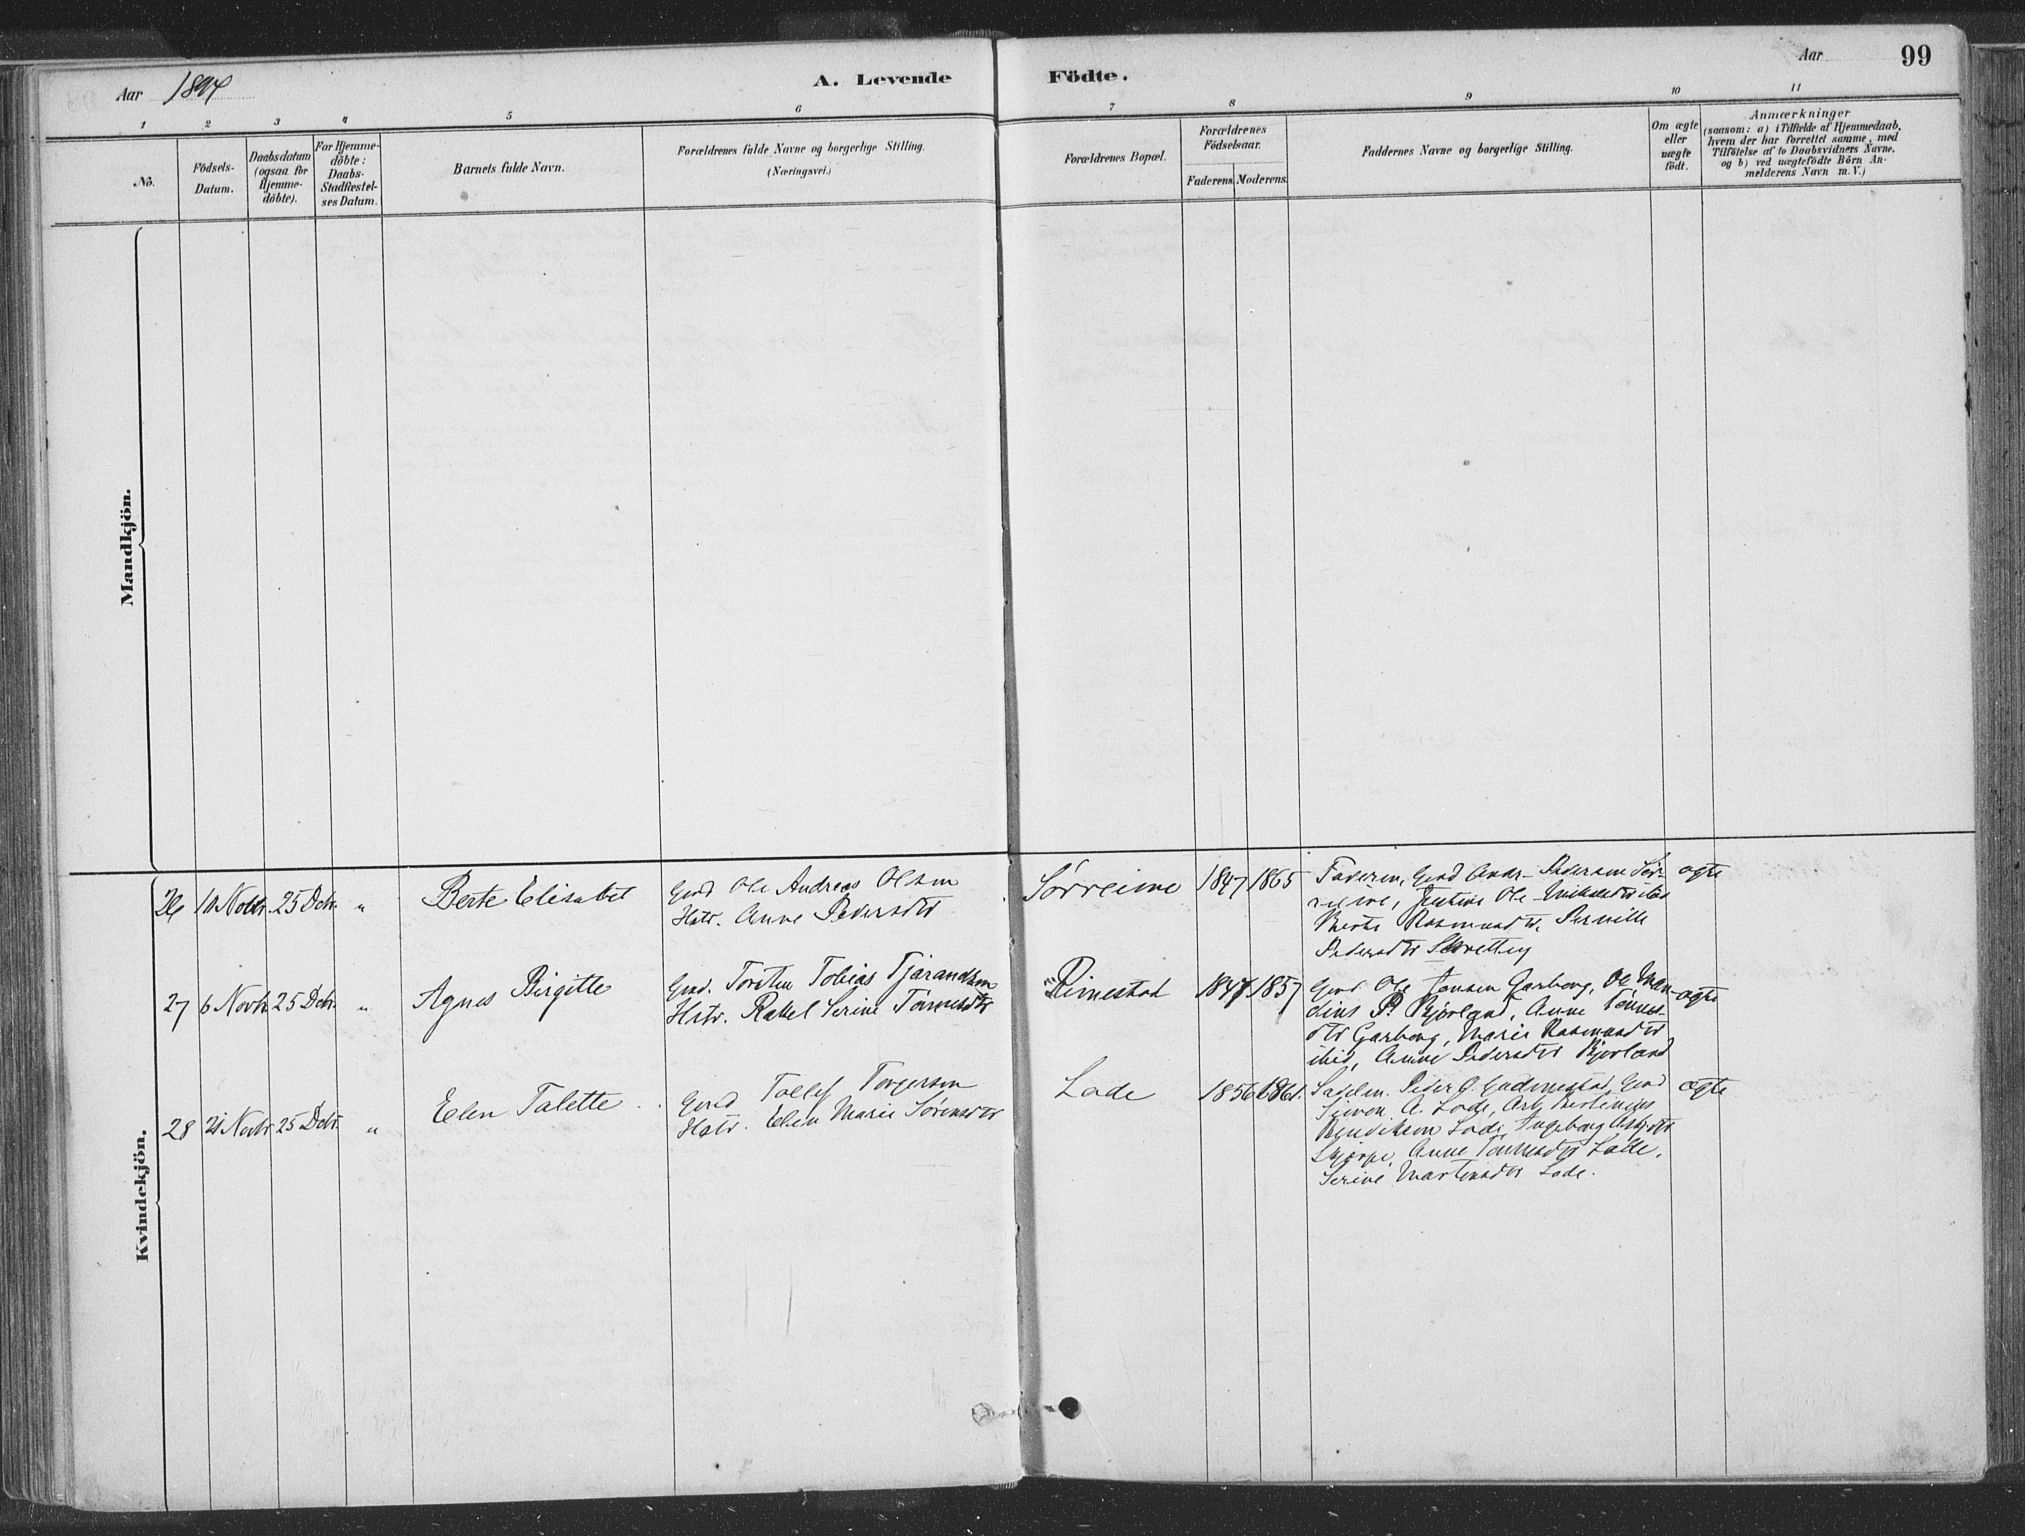 Aar 1894
A. Levende Födte.
Aar
99
1 2 3 4 5 6 7 8 9 10 11
No.
Födsels-
Datum.
Daabsdatum
(ogsaa for
Hjemme-
døbte).
For Hjemme-
døbte:
Daabs-
Stadfæstel-
ses Datum.
Barnets fulde Navn.
Forældrenes fulde Navne og borgerlige Stilling.
(Næringsvei.)
Forældrenes Bopæl.
Forældrenes
Födselsaar.
Faderens. Moderens.
Faddernes Navne og borgerlige Stilling.
Om ægte
eller
uægte
født.
Anmærkninger
(saasom: a) i Tilfælde af Hjemmedaab,
hvem der har forrettet samme, med
Tilføielse af to Daabsvidners Navne,
og b) ved uægtefødte Börn An-
melderens Navn m. V.)
Mandkjön.
Kvindekjön.
26 10 Novbr. 25 Dcbr. " Berte Elisabet
Gmd Ole Andreas Olsen
Hstr. Anne Pedersdtr
Sörreime 1847 1865
Faderen, Gmd Andr. Pedersen Sör-
reime, Ole
Berte Rasmusdtr, Pernille
Pedersdtr
ægte
27 6 Novbr. 25 Dcbr. " Agnes Birgitte
Gmd. Torsten Tobias Tjärandsen
Hstr. Rakel Serine Tönnesdtr
Rimestad 1847 1857
Gmd Ole Jonsen Garborg, Ole Man-
dius P. Bjorland, Anne Tönnes-
dtr Garborg, Marie Rasmusdtr
ibid, Anne Pedersdtr Bjorland
ægte
28 21 Novbr 25 Dcbr. " Elen Talette
Gmd Tollef Torgersen
Hstr. Elen Marie Sörensdtr
Lode 1856 1861.
Sadelm. Peder G. Gudmestad, Gmd
Simon A. Lode, Arb Bertinius
Bendiksen Lode, Ingeborg
Skjerpe, Anne Tönnesdtr Lode,
Serine Martinsdtr Lode.
ægte